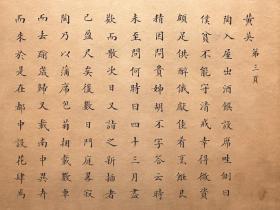 黃英 第三頁
陶入屋出酒饌設席畦側曰
僕貧不能守清戒幸得微貲
頗足供醉俄獻佳肴烹飪良
精因問貴姊胡不字答云時
未至問何時曰四十三月盡
歡而散次日又詣之新插者
已盈尺矣後數日門庭畧寂
陶乃以蒲席包菊捆載數車
而去踰歲歸又載南中異卉
而來於是在都中設花肆焉